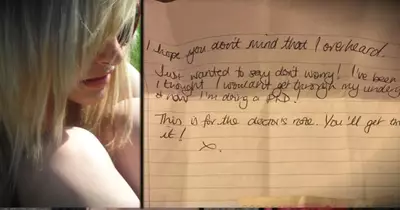 I hope you don't mind that I overheard.
Just wanted to say don't worry! I've been
I thought I wouldn't get through my underg
& now I'm doing a PhD!
This is for the doctor's note. You'll get on
it!
x.